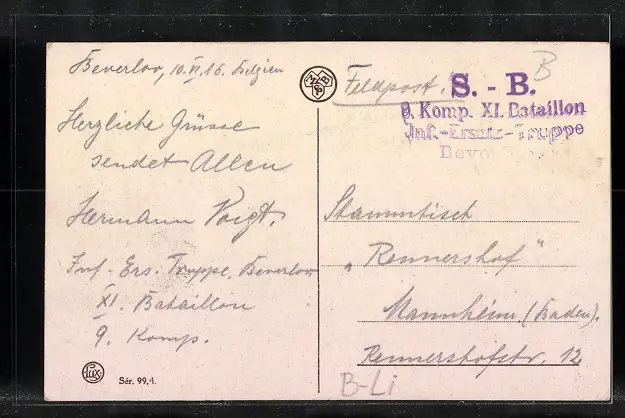 Beverloo, 10.VI.16. Belgien
Herzliche Grüsse
sendet Allen
Hermann Voigt.
Inf. Ers. Truppe, Beverloo
XI. Bataillon
9. Komp.
Lux
Sér. 99,1.
Feldpost.
B
S. - B.
9. Komp. XI. Bataillon
Inf.-Ersatz-Truppe
Stammtisch
„Rennershof“
Mannheim (Baden).
Rennershofstr. 12
B-Li